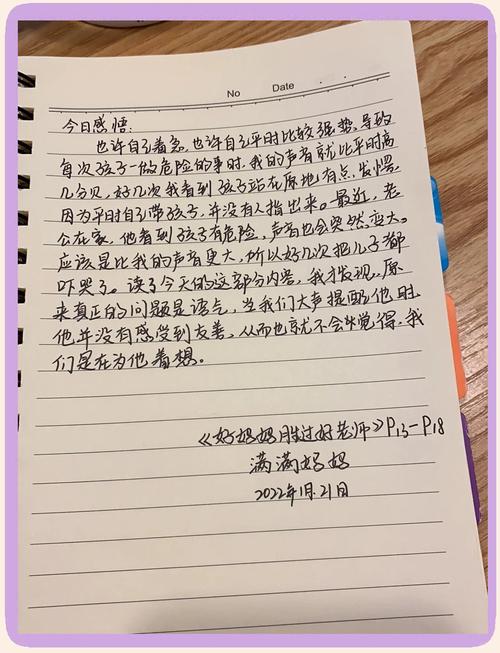 No Date
今日感悟:
也许自己着急,也许自己平时比较强势,导致
每次孩子一做危险的事时,我的声音就比平时高
几分贝,好几次我看到孩子站在原地有点发愣,
因为平时自己带孩子,并没有人指出来。最近,老
公在家,他看到孩子有危险,声音也会突然变大。
应该是比我的声音更大,所以好几次把儿子都
吓哭了。读了今天的这部分内容,我才发现,原
来真正的问题是语气,当我们大声提醒他时
他并没有感受到友善,从而也就不会觉得,我
们是在为他着想。
《好妈妈胜过好老师》P13-P18
满满妈妈
2022年1月21日